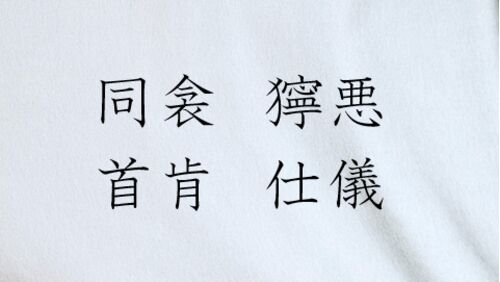 同衾 獰悪
首肯 仕儀